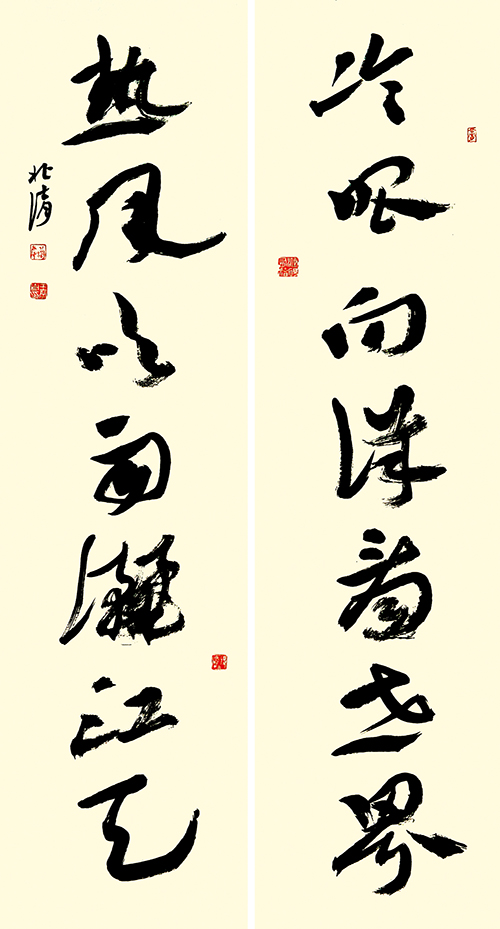 冷眼向洋看世界
热风吹雨洒江天